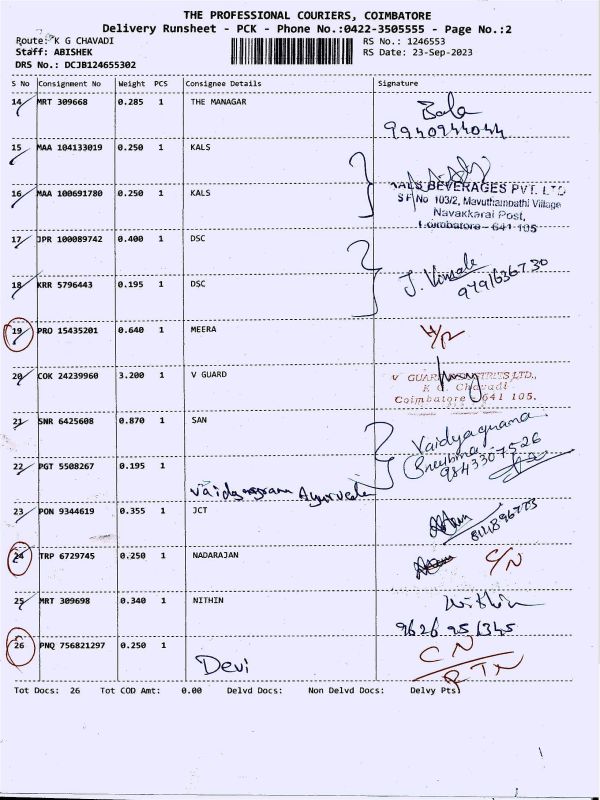 THE PROFESSIONAL COURIERS, COIMBATORE
Delivery Runsheet - PCK - Phone No.:0422-3505555 - Page No.:2
Route: K G CHAVADI RS No.: 1246553
Staff: ABISHEK RS Date: 23-Sep-2023
DRS No.: DCJB124655302
S No Consignment No Weight PCS Consignee Details Signature
14 MRT 309668 0.285 1 THE MANAGAR Bala
9940944044
15 MAA 104133019 0.250 1 KALS
16 MAA 100691780 0.250 1 KALS
KALS BEVERAGES PVT. LTD
S F No 103/2, Mavuthampathi Village
Navakkarai Post,
Coimbatore - 641 105
17 JPR 100089742 0.400 1 DSC
18 KRR 5796443 0.195 1 DSC J. Vimale
9791636730
19 PRO 15435201 0.640 1 MEERA
20 COK 24239960 3.200 1 V GUARD V GUARD INDUSTRIES LTD.,
K G Chavadi
Coimbatore - 641 105.
21 SNR 6425608 0.870 1 SAN Vaidyagrama
9843307526
22 PGT 5508267 0.195 1
Vaidyagrama Ayurveda
23 PON 9344619 0.355 1 JCT
24 TRP 6729745 0.250 1 NADARAJAN C/N
25 MRT 309698 0.340 1 NITHIN Nithin
9626951345
26 PNQ 756821297 0.250 1 CN
Devi RTN
Tot Docs: 26 Tot COD Amt: 0.00 Delvd Docs: Non Delvd Docs: Delvy Pts: